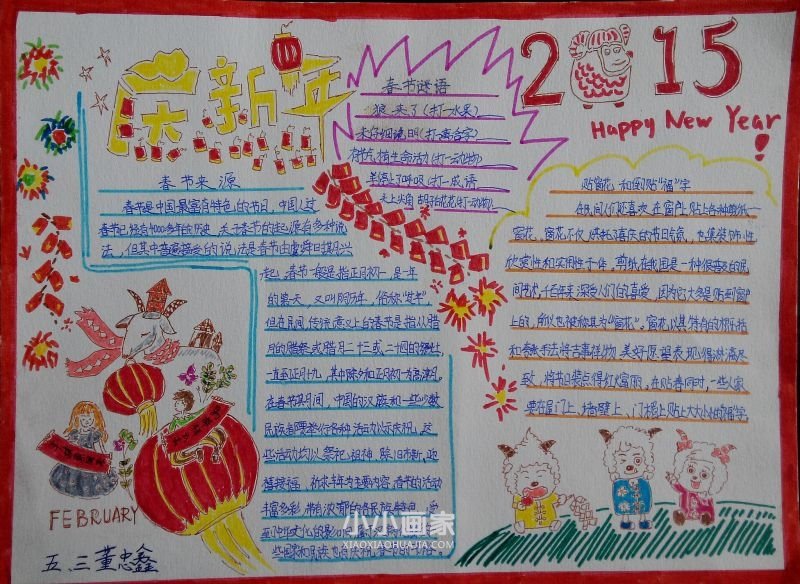 庆新年
春节来源
春节是中国最富有特色的节日,中国人过
春节已经有4000多年的历史,关于春节的起源有多种说
法,但其中普遍接受的说法是春节由虞舜日其兴
起。春节一般是指正月初一,是一年
的第一天,又叫阴历年,俗称"过年"
但在民间,传统意义上的春节是指从腊
月的腊祭或腊月二十三或二十四的祭灶
一直至正月十九,其中除夕和正月初一为高潮月。
在春节其月间,中国的汉族和一些少数
民族都要举行各种活动以示庆祝。这
些活动均以祭祀祖神、除旧布新、迎
禧接福、祈求丰年为主要内容。春节的活动
丰富多彩,带有浓郁的各民族特色。受
到中华文化的影响,
些国家和民族也
春节谜语
狼来了(打一水果)
未仔细说明(打一离合字)
有节,植生命活动(打一动物)
羊停止了呼吸(打一成语
头上尖角 胡子花花(打一动物)
2015
Happy New Year!
贴窗花和倒贴"福"字
民间人们还喜欢在窗户上贴上各种剪纸一
窗花。窗花不仅烘托了喜庆的节日气氛,也集装饰性
欣赏性和实用性于一体。剪纸在我国是一种很普及的民
间艺术,千百年来深受人们的喜爱,因为它大多是贴到窗户
上的,所以也被称其为"窗花"。窗花以其特有的概括
和夸张手法将吉事祥物、美好愿望表现得淋漓尽
致,将节日装点得红火富丽,在贴春同时,一些人家
要在屋门上、墙壁上、门楣上贴上大大小小的"福"字
FEBRUARY
五.三董忠鑫
小小画家
XIAOXIAOHUAJIA.COM